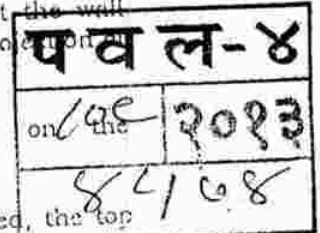 t the wall
प व ल-४
on the २०१३
४५/७४
ed, the top